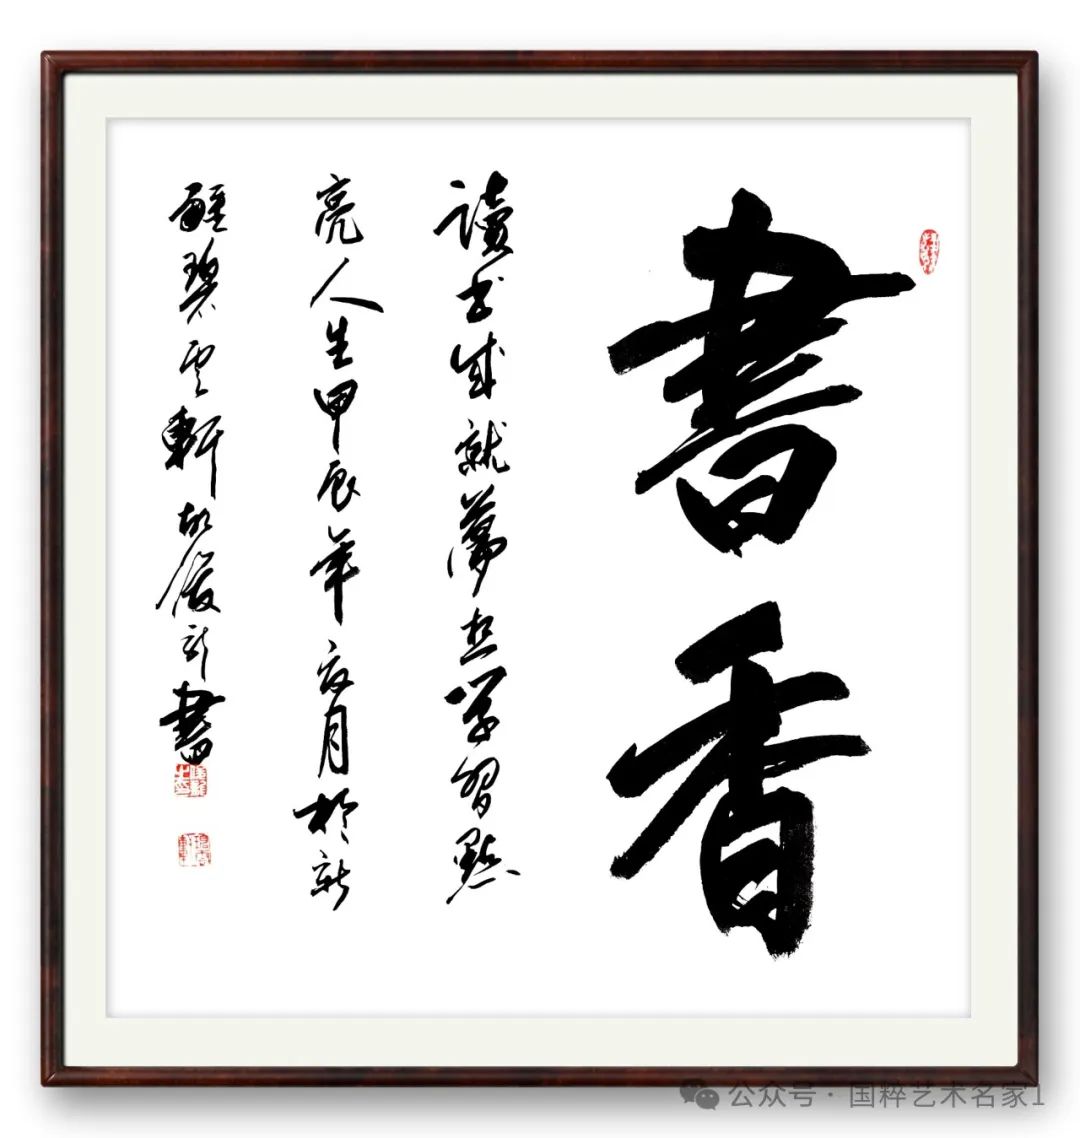 書香
讀书成就夢想学習點
亮人生甲辰年夏月於新
疆碧雲軒胡俊書
公众号 · 国粹艺术名家1